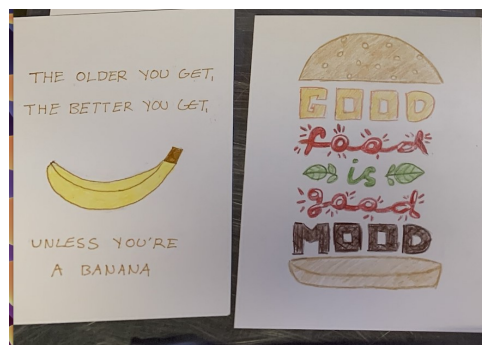 THE OLDER YOU GET,
THE BETTER YOU GET,
UNLESS YOU'RE
A BANANA
GOOD
food
is
good
MOOD